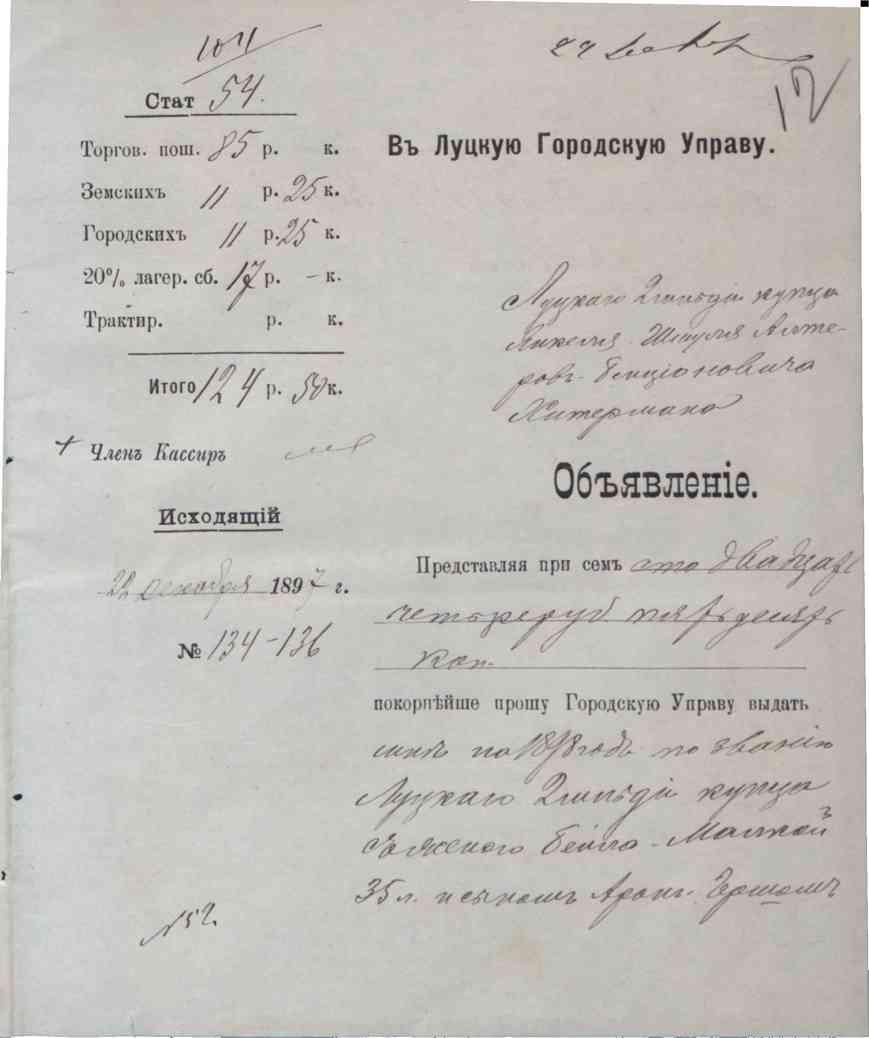 104
22 Декабр
12
Стат 54.
Торгов. пош. 85 р. к.
Земскихъ 11 р. 25 к.
Городскихъ 11 р. 25 к.
20% лагер. сб. 17 р. – к.
Трактир. р. к.
Итого 124 р. 50 к.
+ Членъ Кассиръ
Исходящій
22 декабря 1897 г.
№ 134-136
№52
Въ Луцкую Городскую Управу.
Луцкаго 2 гильдіи купца
Янкеля Шмуля Алте-
ровъ Бенціоновича
Хитермана
Объявленіе.
Представляя при семъ сто двадцать
четыре руб пятьдесятъ
коп.
покорнѣйше прошу Городскую Управу выдать
мнѣ на 1898 годъ по званію
Луцкаго 2 гильдіи купца
съ женою Бейла-Малкой
35 л. и сыномъ Аронъ Гершомъ